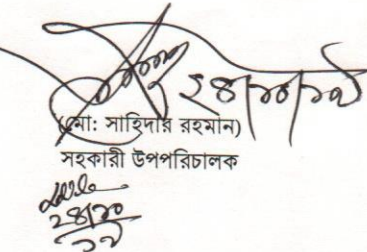 ২৪/১০/১৯
(মো: সাহিদার রহমান)
সহকারী উপপরিচালক
২৪/১০
১৯